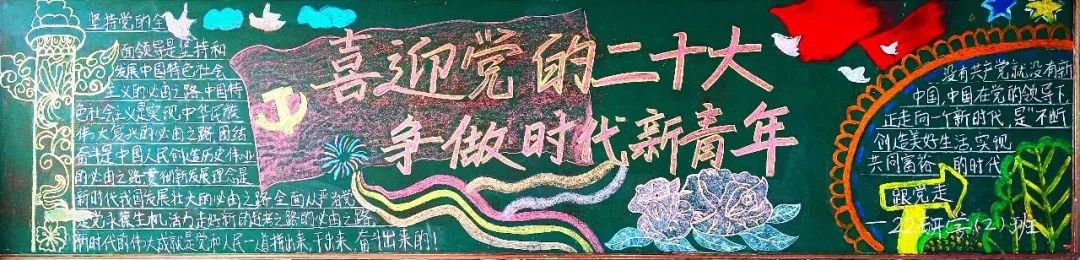 坚持党的全
面领导是坚持和
发展中国特色社会
主义的必由之路,中国特
色社会主义是实现中华民族
伟大复兴的必由之路,团结
奋斗是中国人民创造历史伟业
的必由之路,贯彻新发展理念是
新时代我国发展壮大的必由之路,全面从严治党
是党永葆生机活力走好新的赶考之路的必由之路
新时代的伟大成就是党和人民一道拼出来、干出来、奋斗出来的!
喜迎党的二十大
争做时代新青年
没有共产党就没有新
中国,中国在党的领导下
正走向一个新时代,是"不断
创造美好生活,实现
共同富裕"的时代
跟党走
—22研学(2)班